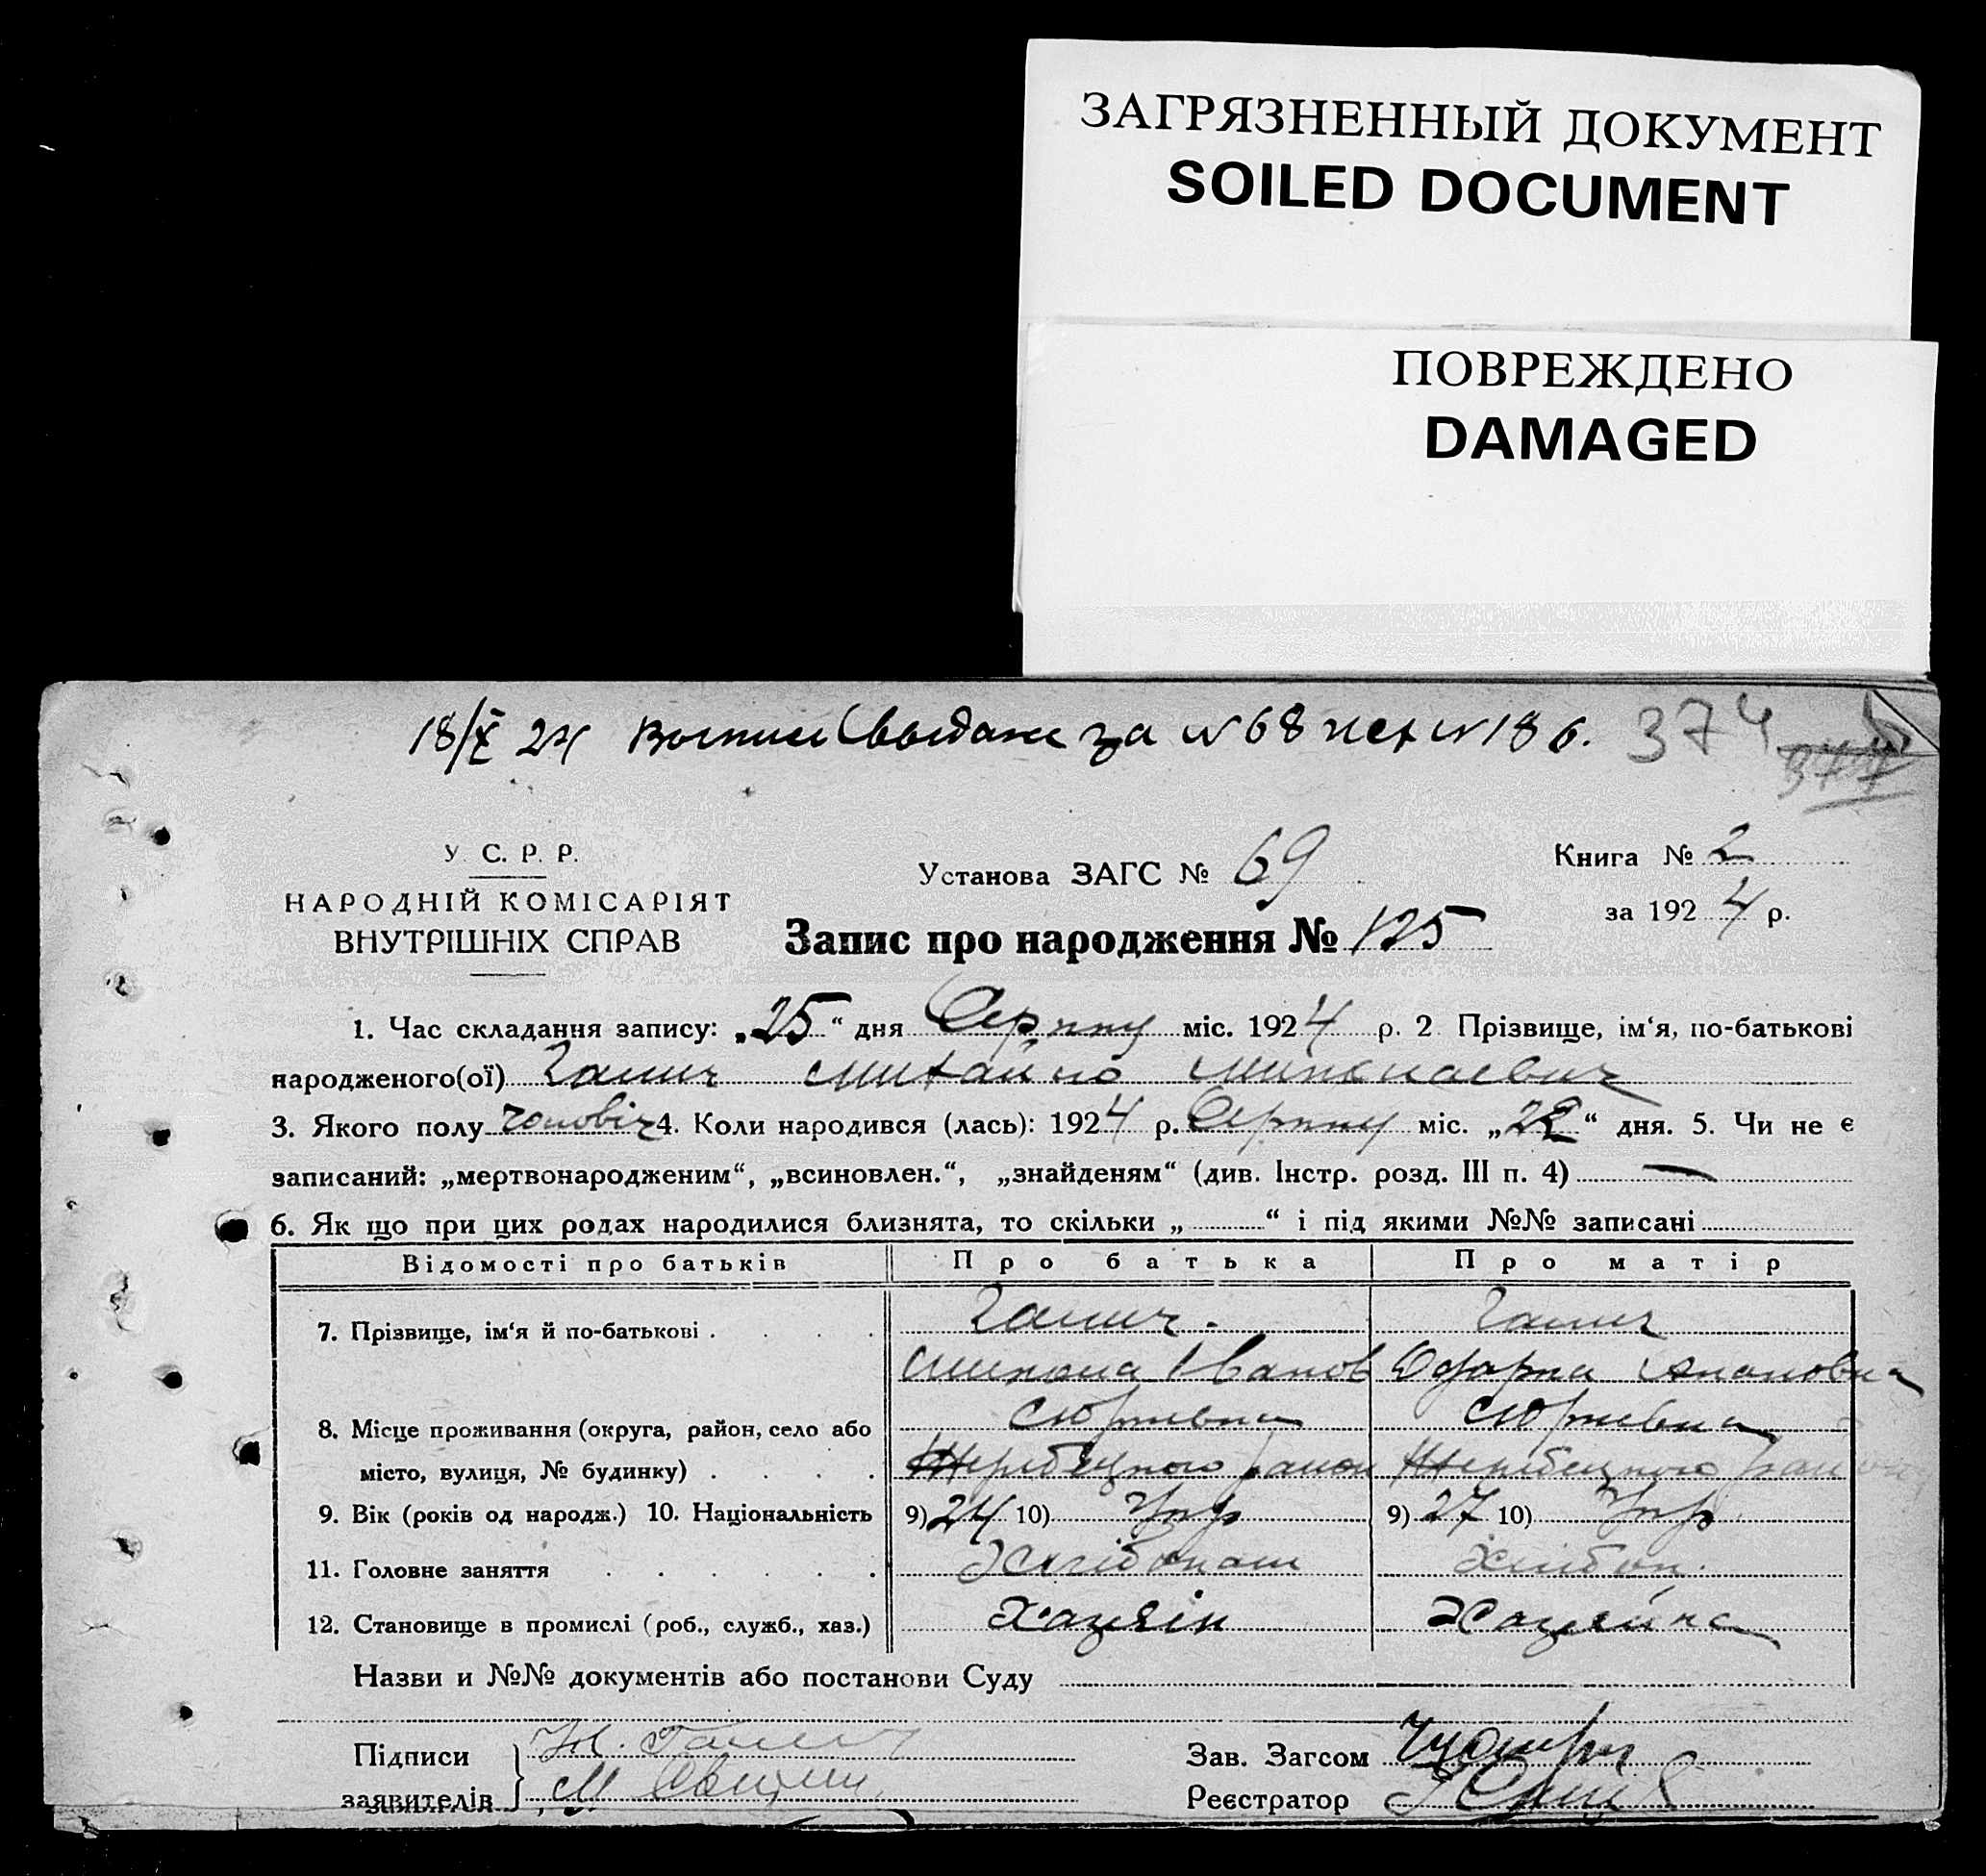 ЗАГРЯЗНЕННЫЙ ДОКУМЕНТ
SOILED DOCUMENT
ПОВРЕЖДЕНО
DAMAGED
18/X 24 за №68 186. 374
У. С. Р. Р.
НАРОДНІЙ КОМІСАРІЯТ
ВНУТРІШНІХ СПРАВ
Установа ЗАГС № 69
Книга № 2
за 1924 р.
Запис про народження № 125
1. Час складання запису: „25“ дня Серпну міс. 1924 р. 2 Прізвище, ім‘я, по-батькові
народженого(ої) Галич Михайло Миколаевич
3. Якого полу чоловіч 4. Коли народився (лась): 1924 р. Серпну міс. „22“ дня. 5. Чи не є
записаний: „мертвонародженим“, „всиновлен.“, „знайденям“ (див. Інстр. розд. III п. 4) —
6. Як що при цих родах народилися близнята, то скільки „ “ і під якими №№ записані
Відомості про батьків Про батька Про матір
7. Прізвище, ім‘я й по-батькові . . . . Галич. Галич
Микола Иванов
8. Місце проживання (округа, район, село або
місто, вулиця, № будинку) . . . . Жеребецкого район Жеребецкого район
9. Вік (років од народж.) 10. Національність 9) 24 10) Укр 9) 27 10) Укр.
11. Головне заняття . . . . . . Хлібопаш Хлібоп.
12. Становище в промислі (роб., служб., хаз.) Хазяін Хазяйка
Назви и №№ документів або постанови Суду
Підписи
заявителів
Зав. Загсом
Реєстратор